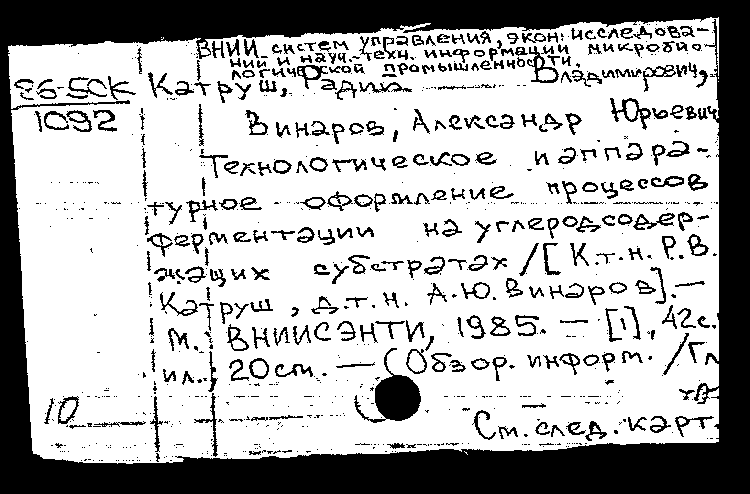 ВНИИ систем управления, экон. исследова-
ний и науч.-техн. информации микробио-
логической промышленности.
86-5СК Катруш, Радий Владимирович,
1092
Винаров, Александр Юрьевич
Технологическое и аппара-
турное оформление процессов
ферментации на углеродсодер-
жащих субстратах /[К.т.н. Р.В.
Катруш, д.т.н. А.Ю. Винаров].—
М.: ВНИИСЭНТИ, 1985. — [1], 42с.:
ил.; 20см. — (Обзор. информ. /Гл
10
См. след. карт.